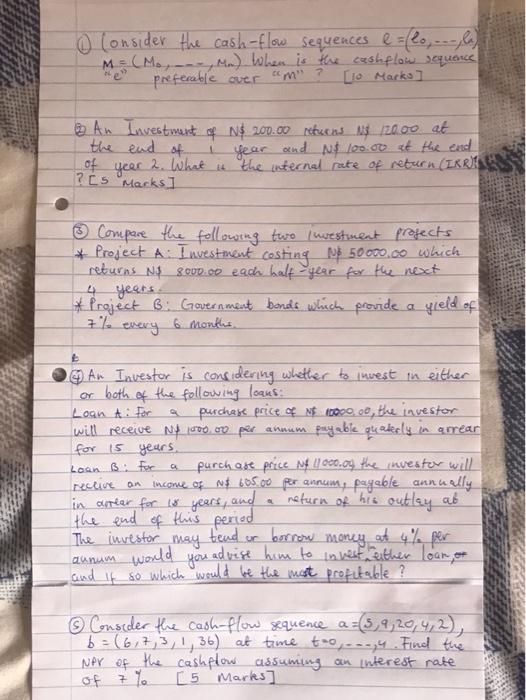 ① Consider the cash-flow sequences e = (e₀, ---, eₙ)
M = (M₀, ---, Mn). When is the cashflow sequence
"e" preferable over "m" ? [10 Marks]
② An Investment of N$ 200.00 returns N$ 120.00 at
the end of 1 year and N$ 100.00 at the end
of year 2. What is the internal rate of return (IRR)
? [5 Marks]
③ Compare the following two investment projects
* Project A: Investment costing N$ 50000.00 which
returns N$ 8000.00 each half-year for the next
4 years.
* Project B: Government bonds which provide a yield of
7% every 6 months.
④ An Investor is considering whether to invest in either
or both of the following loans:
Loan A: For a purchase price of N$ 10000.00, the investor
will receive N$ 1000.00 per annum payable quaterly in arrear
for 15 years.
Loan B: For a purchase price N$ 11000.00 the investor will
receive an income of N$ 605.00 per annum, payable annually
in arrear for 18 years, and a return of his outlay at
the end of this period
The investor may lend or borrow money at 4% per
annum would you advise him to invest, either loan, or
and if so which would be the most profitable ?
⑤ Consider the cash-flow sequence a = (5,9,20,4,2),
b = (6,7,3,1,36) at time t=0,---,4. Find the
NPV of the cashflow assuming an interest rate
of 7% [5 Marks]